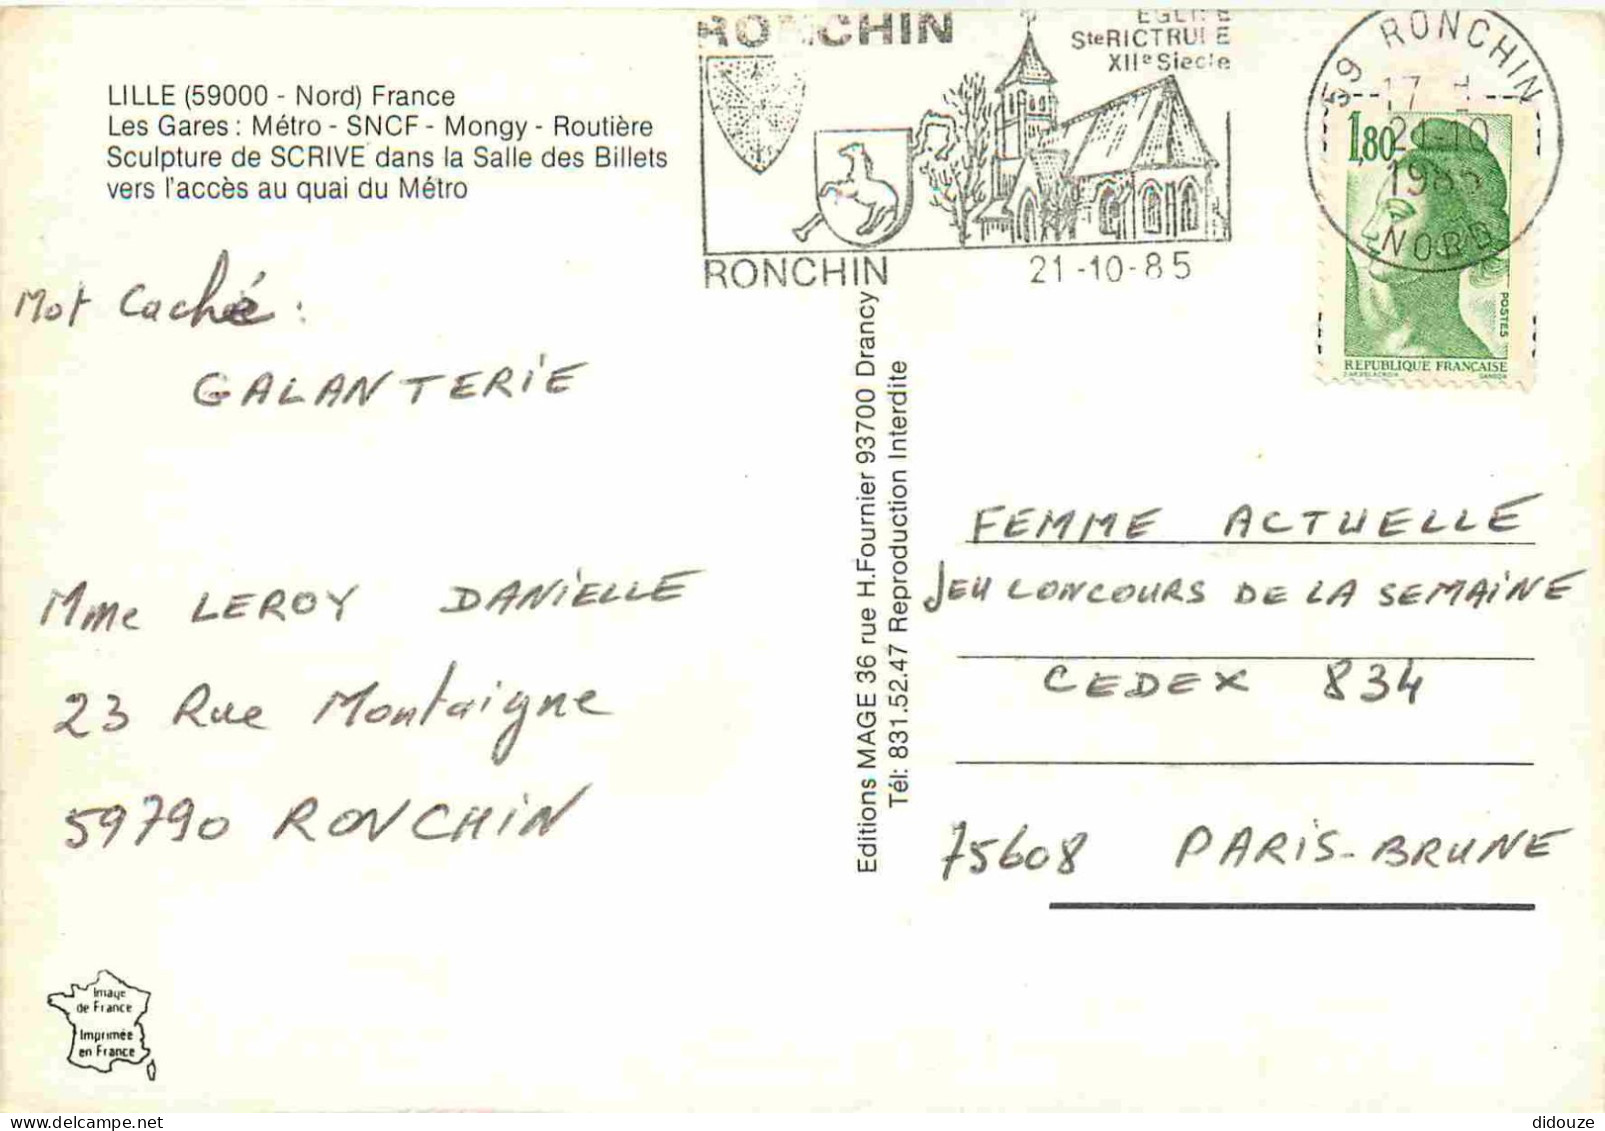 RONCHIN
EGLISE
Ste RICTRUDE
XIIe Siecle
RONCHIN
21-10-85
59 RONCHIN
17 H
21-10
1985
NORD
1,80
POSTES
REPUBLIQUE FRANÇAISE
LILLE (59000 - Nord) France
Les Gares : Métro - SNCF - Mongy - Routière
Sculpture de SCRIVE dans la Salle des Billets
vers l'accès au quai du Métro
Mot Caché :
GALANTERIE
Mme LEROY DANIELLE
23 Rue Montaigne
59790 RONCHIN
Editions MAGE 36 rue H.Fournier 93700 Drancy
Tél: 831.52.47 Reproduction Interdite
FEMME ACTUELLE
JEU CONCOURS DE LA SEMAINE
CEDEX 834
75608 PARIS-BRUNE
Image
de France
Imprimée
en France
didouze